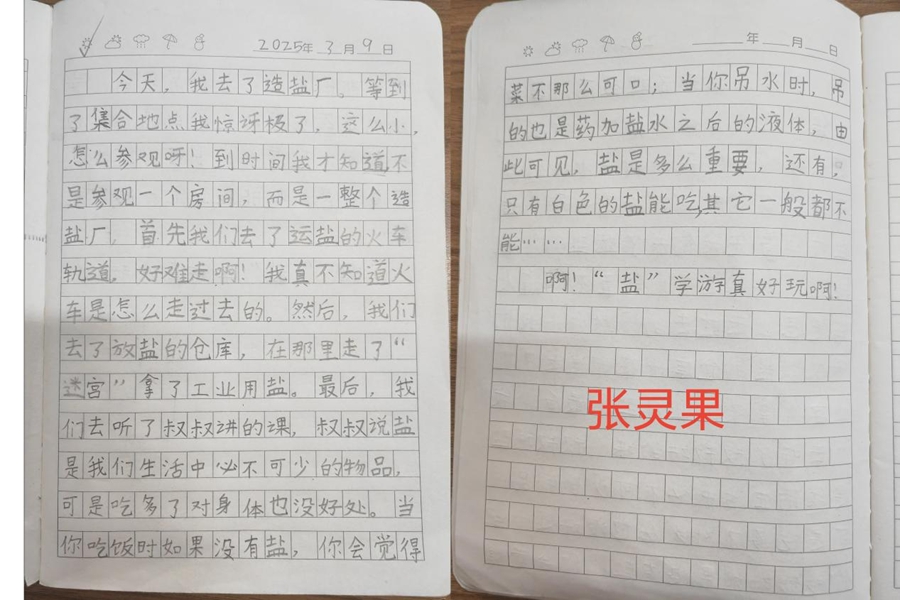 2025年3月9日
今天，我去了造盐厂。等到
了集合地点我惊讶极了，这么小，
怎么参观呀！到时间我才知道，不
是参观一个房间，而是一整个造
盐厂。首先我们去了运盐的火车
轨道。好难走啊！我真不知道火
车是怎么走过去的。然后，我们
去了放盐的仓库，在那里走了“
迷宫”拿了工业用盐。最后，我
们去听了叔叔讲的课，叔叔说盐
是我们生活中必不可少的物品，
可是吃多了对身体也没好处。当
你吃饭时如果没有盐，你会觉得
年 月 日
菜不那么可口；当你吊水时，吊
的也是药加盐水之后的液体，由
此可见，盐是多么重要，还有，
只有白色的盐能吃，其它一般都不
能……
啊！“盐”学游真好玩啊！
张灵果